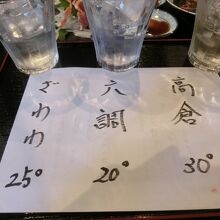 高倉
30°
六調
20°
ざわわ
25°